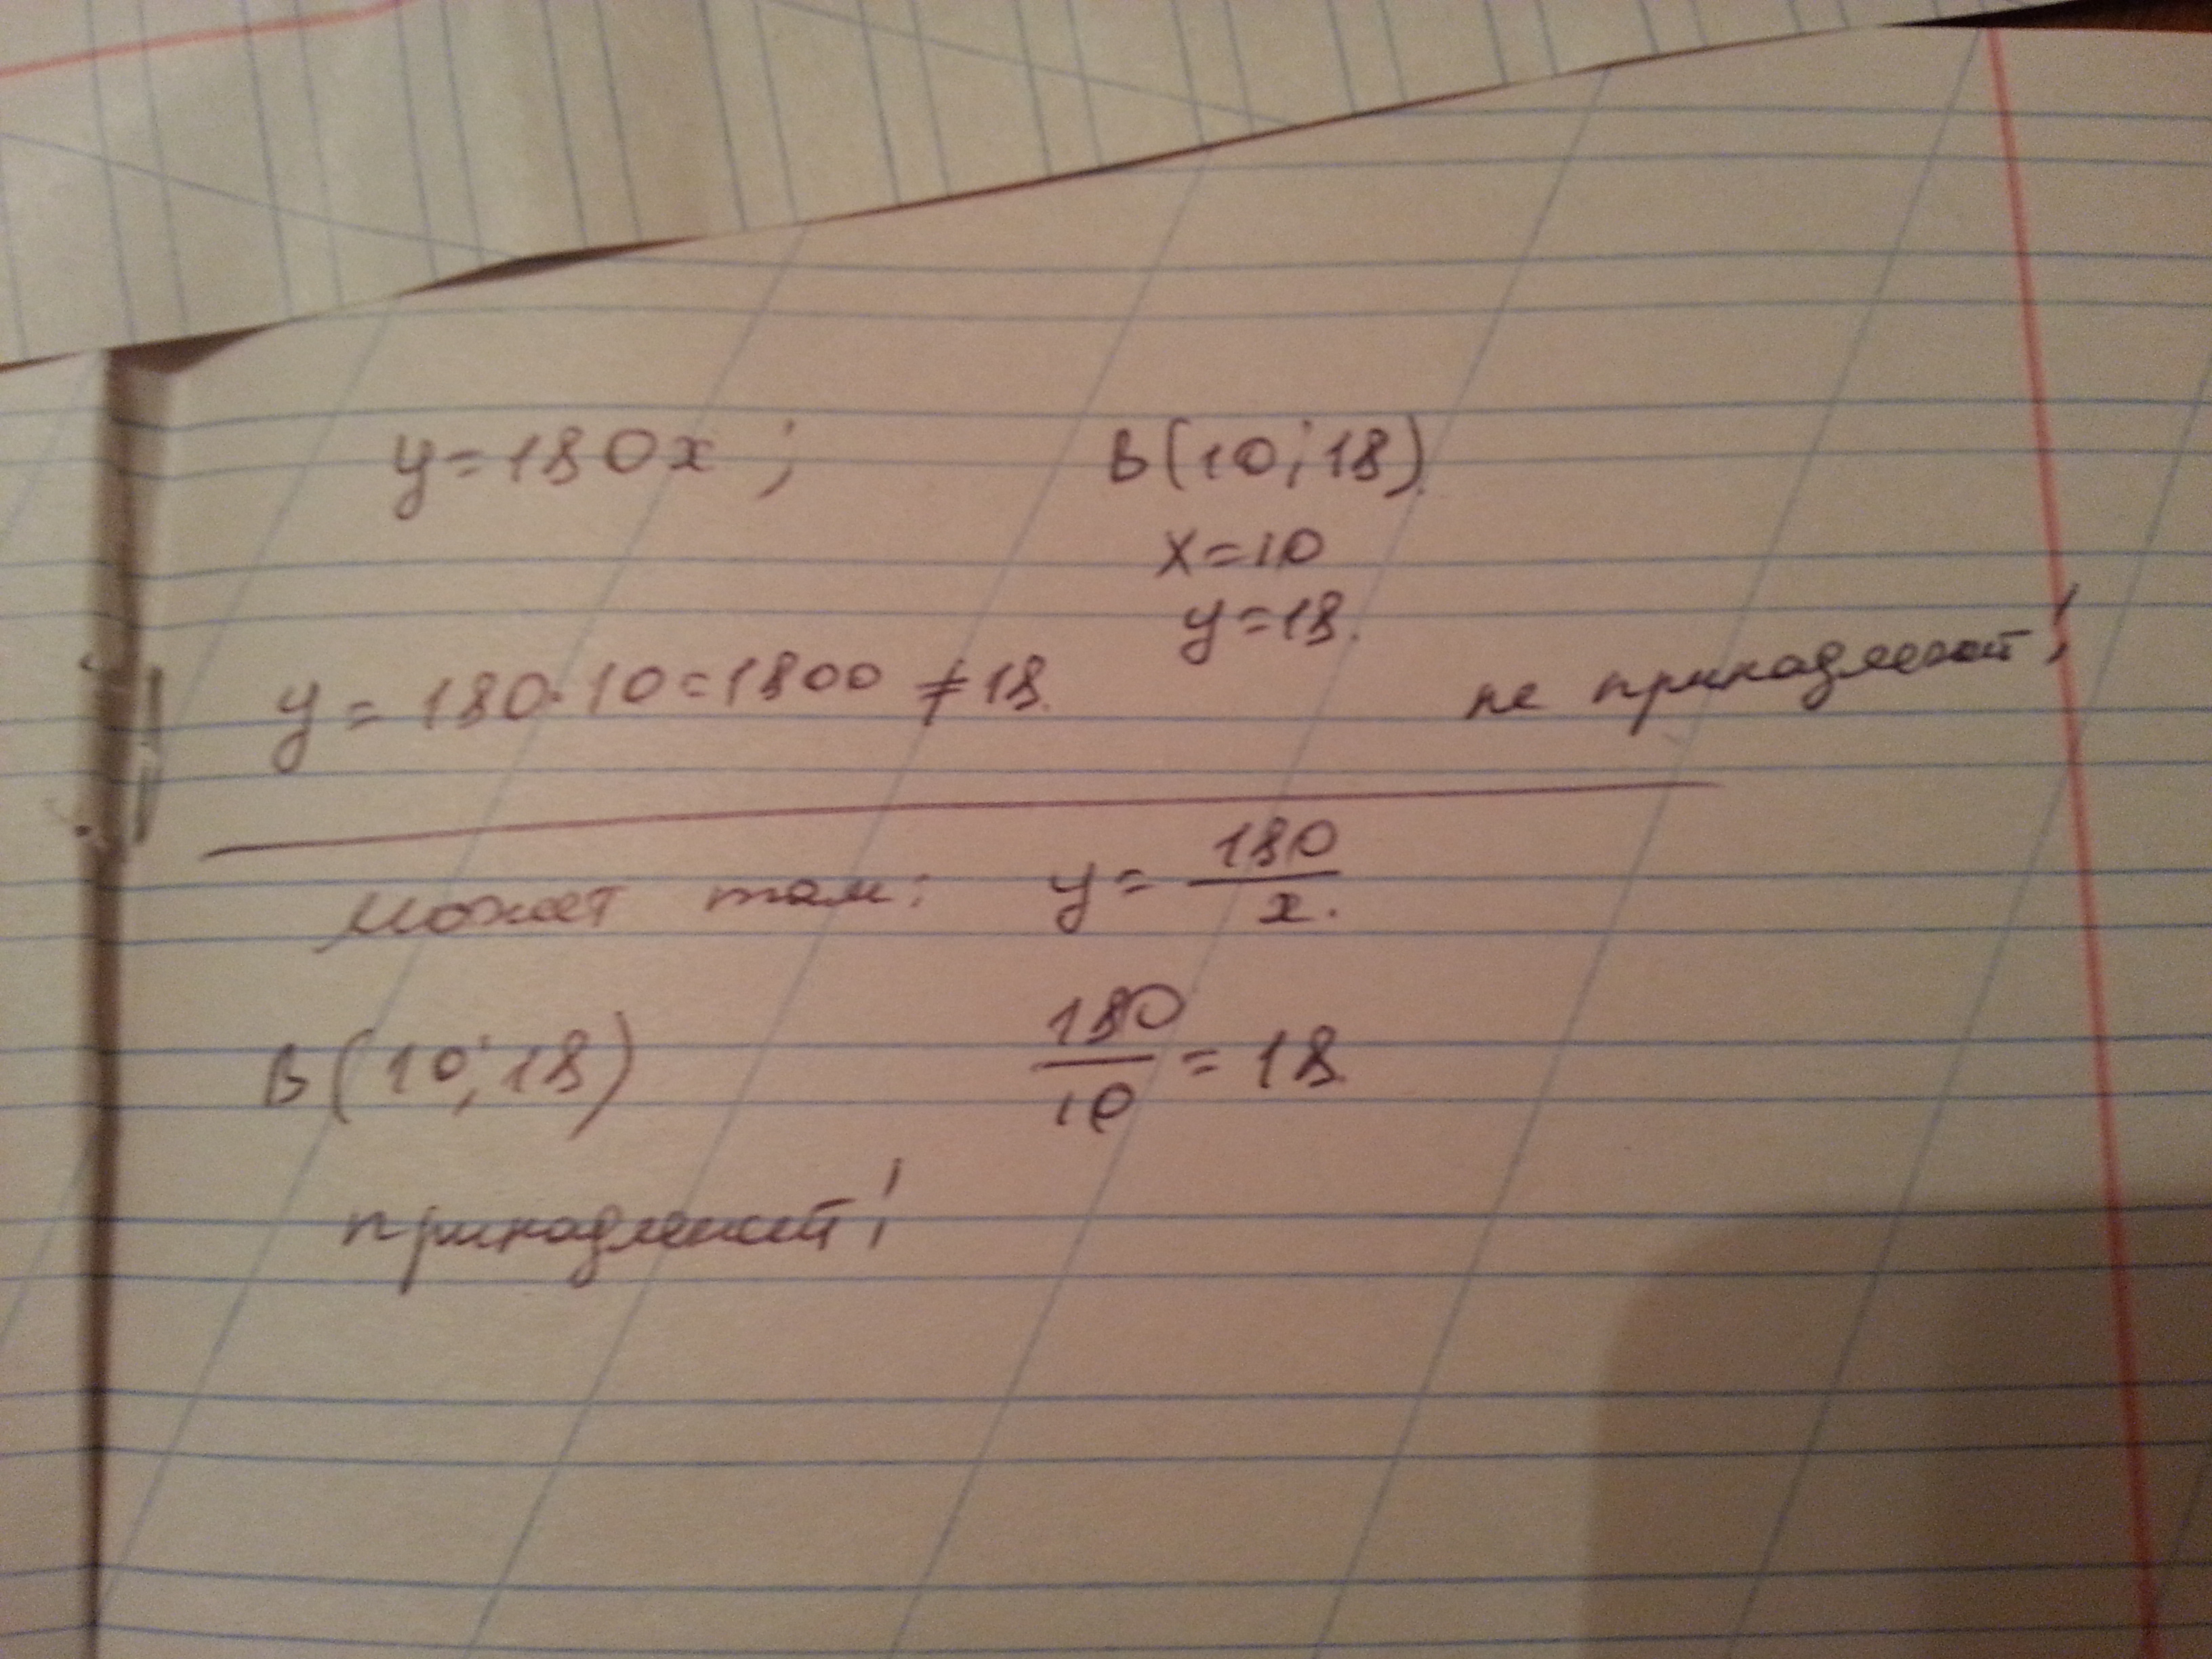 y=180x ; B(10;18).
x=10
y=18.
y = 180·10=1800 ≠18. не принадлежит!
может там: y = 180/x.
B(10;18) 180/10 = 18.
принадлежит!